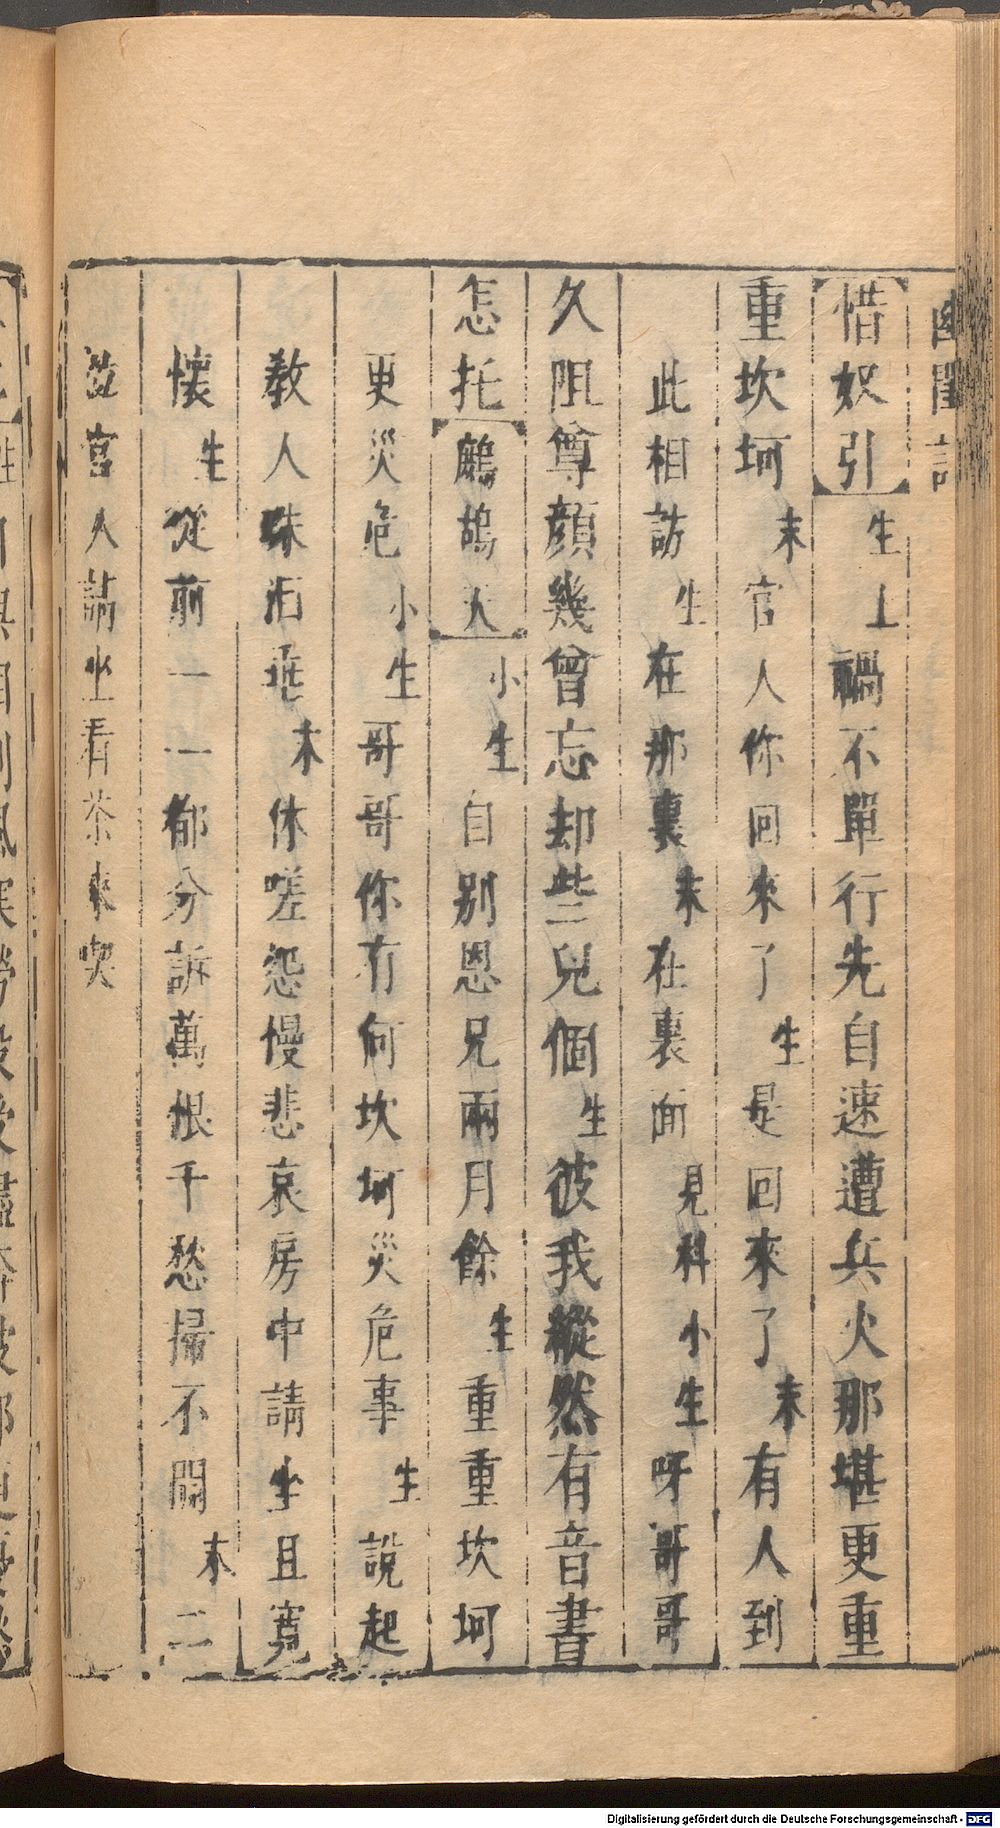 幽閨記
惜奴引生上禍不單行先自速遭兵火那堪更重
重坎坷末官人你回來了生是回來了末有人到
此相訪生在那裏末在裏面見科小生呀哥哥
久阻尊顏幾曾忘却些兒個生彼我縱然有音書
怎托鷓鴣天小生自别恩兄兩月餘生重重坎坷
更災危小生哥哥你有何坎坷災危事生說起
教人珠泪垂末休嗟怨慢悲哀房中請坐且寬
懷生從前一一都分訴萬恨千愁掃不開末二
位官人請坐看茶來喫
Digitalisierung gefördert durch die Deutsche Forschungsgemeinschaft - DFG